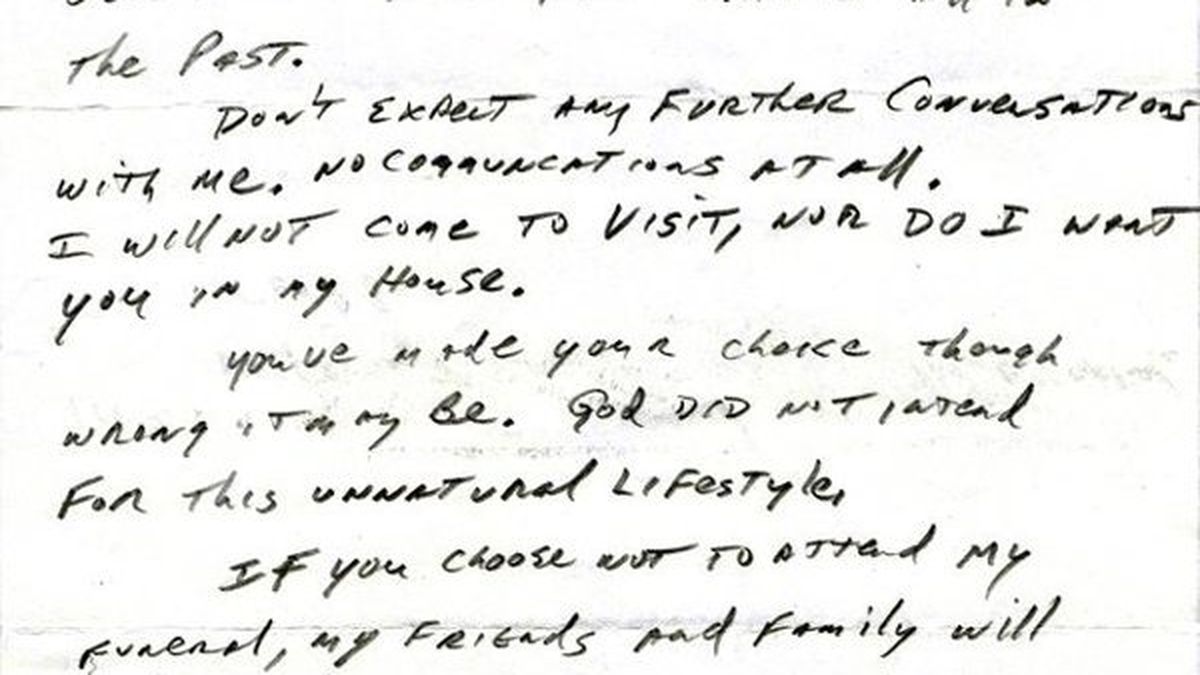 the Past.
Don't Expect any Further Conversations
with me. No communcations at all.
I will not come to visit, nor do I want
you in my house.
you've made your choice though
wrong it may be. God did not intend
for this unnatural lifestyle.
If you choose not to attend my
funeral, my friends and family will